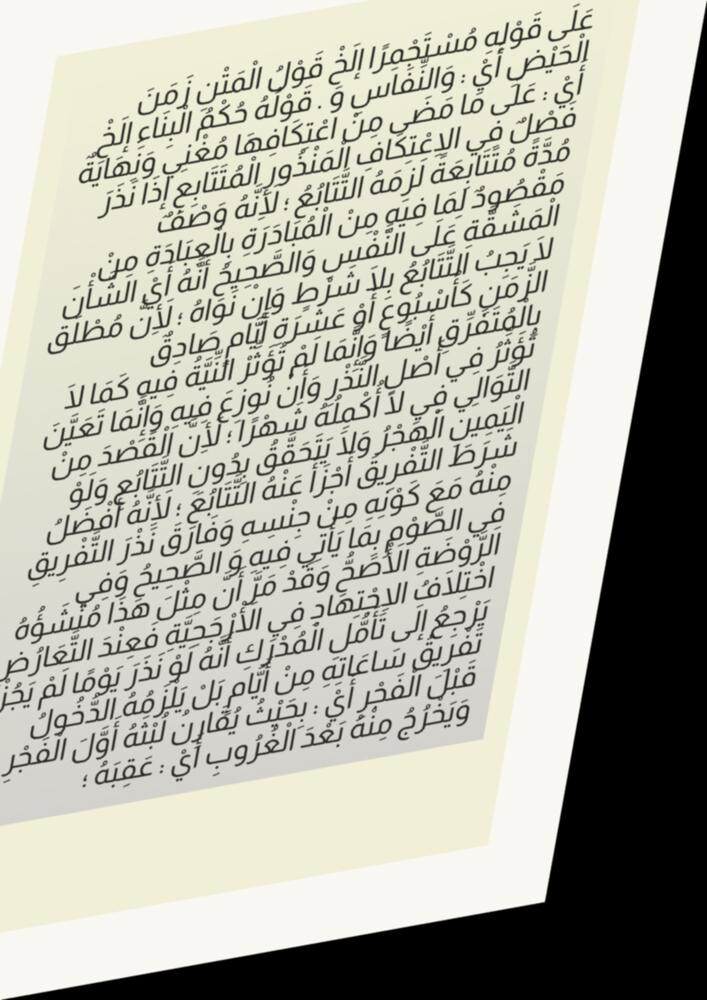 عَلَى قَوْلِهِ مُسْتَجْمِرًا إلَخْ قَوْلُ الْمَتْنِ زَمَنَ
الْحَيْضِ أَيْ : وَالنِّفَاسِ وَ . قَوْلُهُ حُكْمُ الْبِنَاءِ إلَخْ
أَيْ : عَلَى مَا مَضَى مِنْ اعْتِكَافِهَا مُغْنِي وَنِهَايَةٌ
فَصْلٌ فِي الِاعْتِكَافِ الْمَنْذُورِ الْمُتَتَابِعِ إذَا نَذَرَ
مُدَّةً مُتَتَابِعَةً لَزِمَهُ التَّتَابُعُ ؛ لَأَنَّهُ وَصْفٌ
مَقْصُودٌ لِمَا فِيهِ مِنْ الْمُبَادَرَةِ بِالْعِبَادَةِ مِنْ
الْمَشَقَّةِ عَلَى النَّفْسِ وَالصَّحِيحُ أَنَّهُ أَيْ الشَّأْنَ
لَا يَجِبُ التَّتَابُعُ بِلَا شَرْطٍ وَإِنْ نَوَاهُ ؛ لَأِنَّ مُطْلَقَ
الزَّمَنِ كَأُسْبُوعٍ أَوْ عَشَرَةِ أَيَّامٍ صَادِقٌ
بِالْمُتَفَرِّقِ أَيْضًا وَإِنَّمَا لَمْ تُؤَثِّرْ النِّيَّةُ فِيهِ كَمَا لَا
تُؤَثِّرُ فِي أَصْلِ النَّذْرِ وَأَنْ نُوزِعَ فِيهِ وَإِنَّمَا تَعَيَّنَ
التَّوَالِي فِي لَا أُكْمِلُهُ شَهْرًا ؛ لَأِنَّ الْقَصْدَ مِنْ
الْيَمِينِ الْهَجْرُ وَلَا يَتَحَقَّقُ بِدُونِ التَّتَابُعِ وَلَوْ
شَرَطَ التَّفْرِيقَ أَجْزَأَ عَنْهُ التَّتَابُعُ ؛ لَأِنَّهُ أَفْضَلُ
مِنْهُ مَعَ كَوْنِهِ مِنْ جِنْسِهِ وَفَارَقَ نَذْرَ التَّفْرِيقِ
فِي الصَّوْمِ بِمَا يَأْتِي فِيهِ وَ الصَّحِيحُ وَفِي
الرَّوْضَةِ الْأَصَحُّ وَقَدْ مَرَّ أَنَّ مِثْلَ هَذَا مُنْشَؤُهُ
اخْتِلَافُ الِاجْتِهَادِ فِي الْأَرْجَحِيَّةِ فَعِنْدَ التَّعَارُضِ
يَرْجِعُ إلَى تَأَمُّلِ الْمُدْرَكِ أَنَّهُ لَوْ نَذَرَ يَوْمًا لَمْ يَجُزْ
تَفْرِيقُ سَاعَاتِهِ مِنْ أَيَّامٍ بَلْ يَلْزَمُهُ الدُّخُولُ
قَبْلَ الْفَجْرِ أَيْ : بِحَيْثُ يُقَارِنُ لُبْثُهُ أَوَّلَ الْفَجْرِ
وَيَخْرُجُ مِنْهُ بَعْدَ الْغُرُوبِ أَيْ : عَقِبَهُ ؛